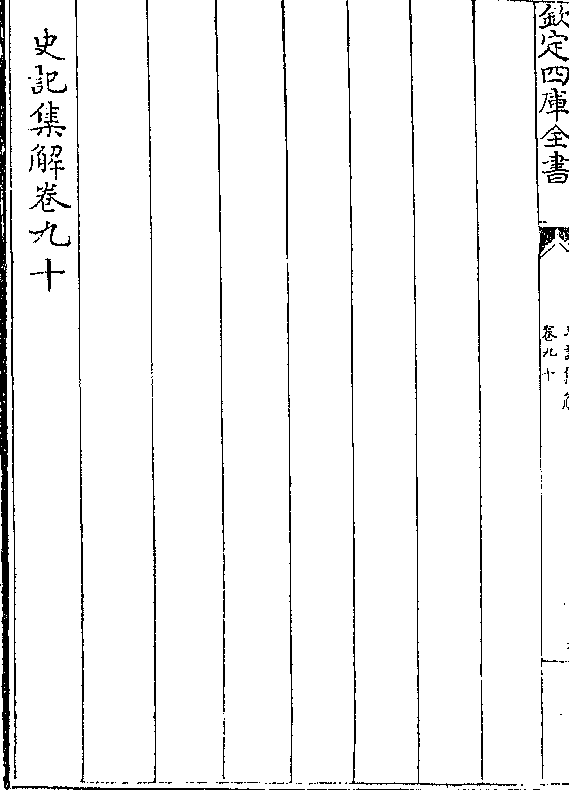 欽定四庫全書
卷九十
史記集解卷九十